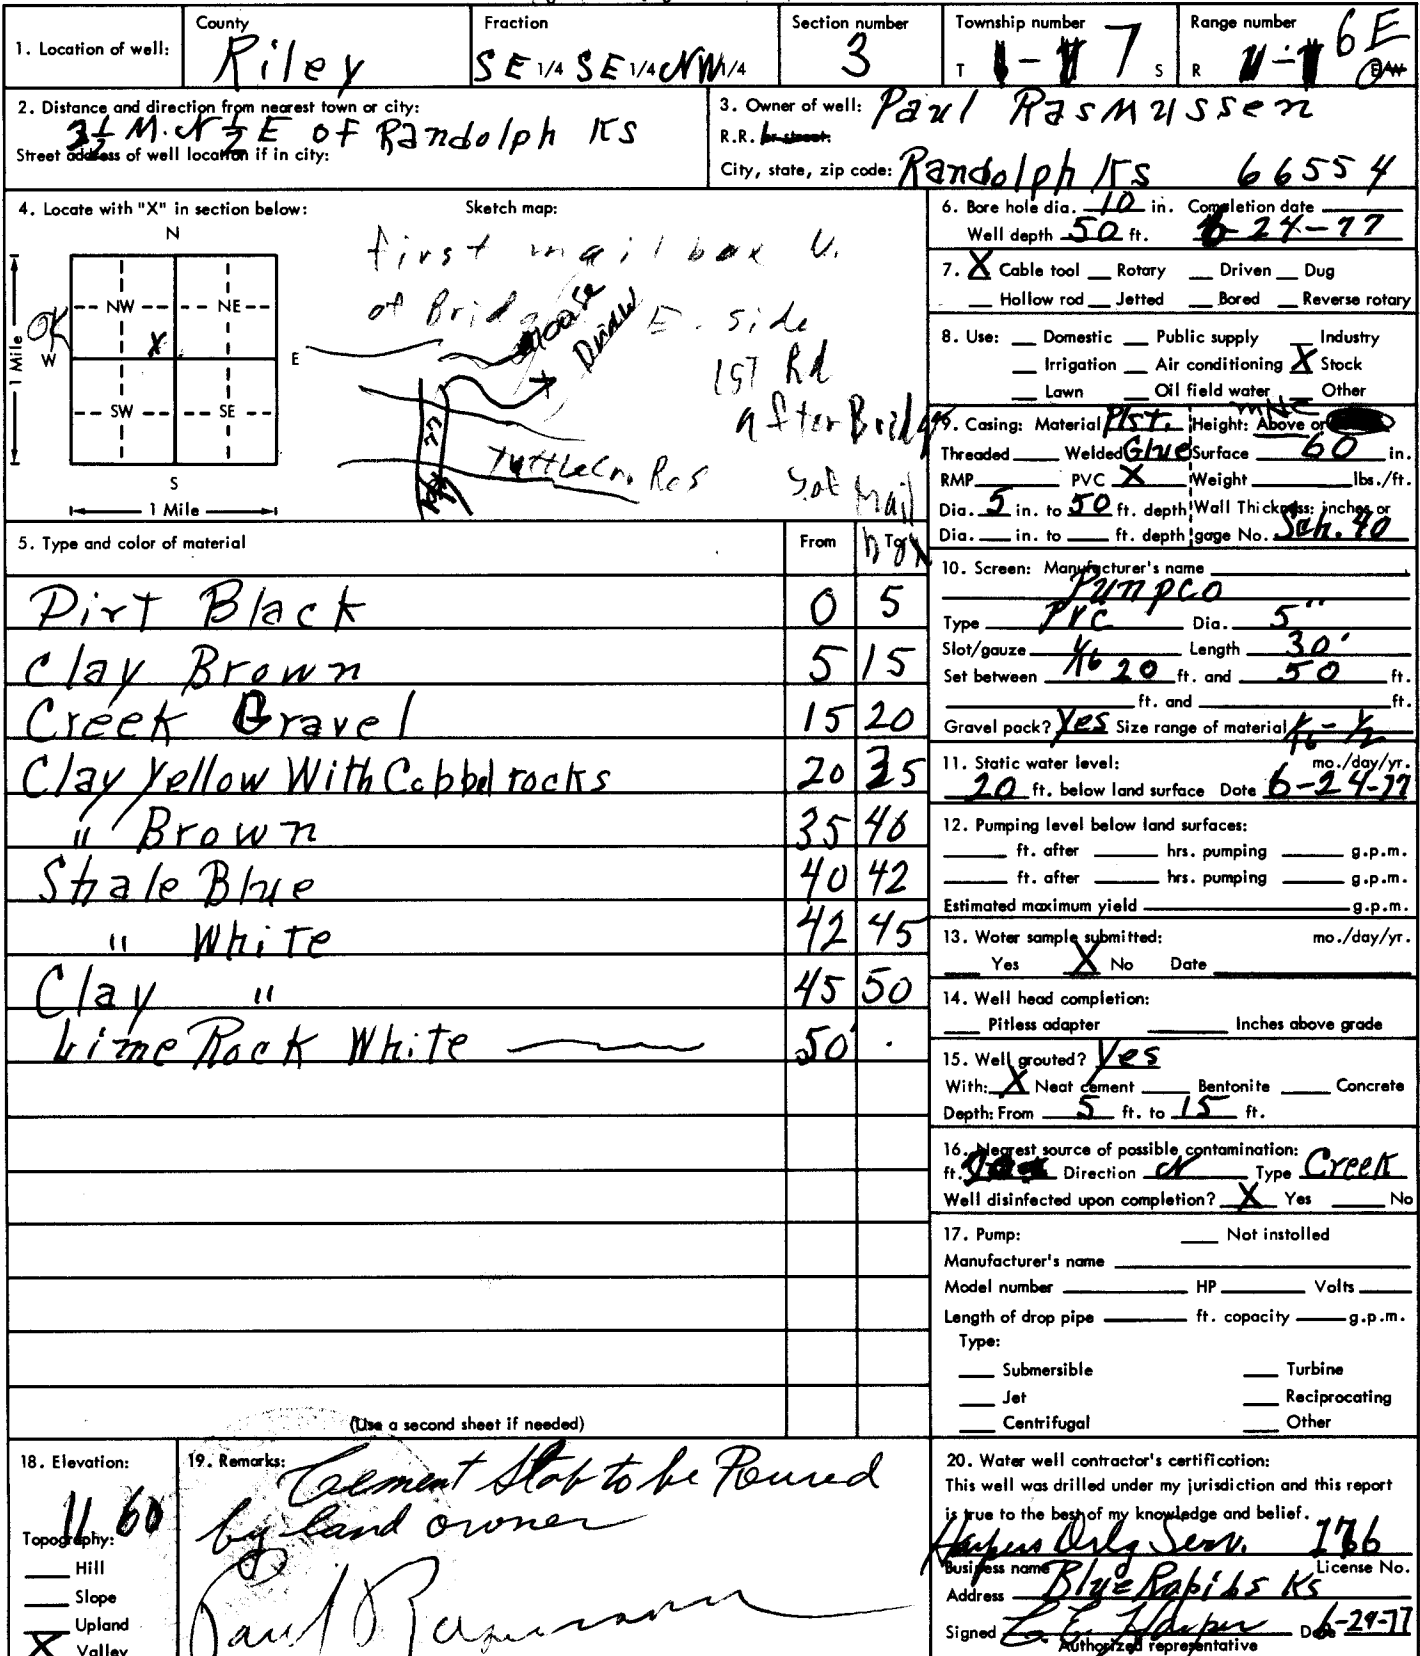 1. Location of well: County Riley Fraction SE 1/4 SE 1/4 NW 1/4 Section number 3 Township number T 7 S Range number R 6E E/W
2. Distance and direction from nearest town or city:
3½ M. N ½ E of Randolph KS
Street address of well location if in city:
3. Owner of well: Paul Rasmussen
R.R. or street:
City, state, zip code: Randolph Ks 66554
4. Locate with "X" in section below:
N
NW NE
OK
W X E
SW SE
S
1 Mile
1 Mile
Sketch map:
first mail box
of Bridge E. side
Draw
1st Rd
after Bridge
Tuttle Cr. Res
77
Mail
box
5. Type and color of material From To
Dirt Black 0 5
Clay Brown 5 15
Creek Gravel 15 20
Clay Yellow With Cobbel rocks 20 35
" Brown 35 40
Shale Blue 40 42
" White 42 45
Clay " 45 50
Lime Rock White 50'
(Use a second sheet if needed)
6. Bore hole dia. 10 in. Completion date
Well depth 50 ft. 6-24-77
7. X Cable tool Rotary Driven Dug
Hollow rod Jetted Bored Reverse rotary
8. Use: Domestic Public supply Industry
Irrigation Air conditioning X Stock
Lawn Oil field water Other
9. Casing: Material Plst. Height: Above or
Threaded Welded Glue Surface 60 in.
RMP PVC X Weight lbs./ft.
Dia. 5 in. to 50 ft. depth Wall Thickness: inches or
Dia. in. to ft. depth gage No. Sch. 40
10. Screen: Manufacturer's name
Pumpco
Type PVC Dia. 5"
Slot/gauze 1/16 Length 30'
Set between 20 ft. and 50 ft.
ft. and ft.
Gravel pack? Yes Size range of material 1/16 - 1/2
11. Static water level: mo./day/yr.
20 ft. below land surface Date 6-24-77
12. Pumping level below land surfaces:
ft. after hrs. pumping g.p.m.
ft. after hrs. pumping g.p.m.
Estimated maximum yield g.p.m.
13. Water sample submitted: mo./day/yr.
Yes X No Date
14. Well head completion:
Pitless adapter Inches above grade
15. Well grouted? Yes
With: X Neat cement Bentonite Concrete
Depth: From 5 ft. to 15 ft.
16. Nearest source of possible contamination:
ft. Direction N Type Creek
Well disinfected upon completion? X Yes No
17. Pump: Not installed
Manufacturer's name
Model number HP Volts
Length of drop pipe ft. capacity g.p.m.
Type:
Submersible Turbine
Jet Reciprocating
Centrifugal Other
18. Elevation:
1160
Topography:
Hill
Slope
Upland
X Valley
19. Remarks:
Cement Slab to be Poured
by land owner
Paul Rasmussen
20. Water well contractor's certification:
This well was drilled under my jurisdiction and this report
is true to the best of my knowledge and belief.
Harpers Drlg Serv. 176
Business name License No.
Address Blue Rapids Ks
Signed E. E. Harper Date 6-29-77
Authorized representative